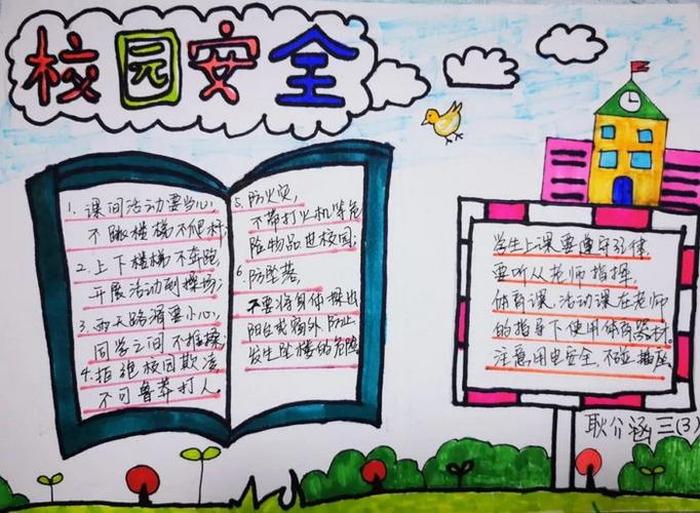 校园安全
1. 课间活动要当心,
不蹦楼梯不爬杆;
2. 上下楼梯不奔跑
开展活动到操场;
3. 雨天路滑要小心,
同学之间不推操;
4. 拒绝校园欺凌
不可鲁莽打人.
5. 防火灾,
不带打火机等危
险物品进校园;
6. 防坠落,
不要将身体探出
阳台或窗外防止
发生坠楼的危险
学生上课要遵守纪律
要听从老师指挥,
体育课、活动课在老师
的指导下使用体育器材.
注意用电安全,不碰插座
耿介涵 三(3)